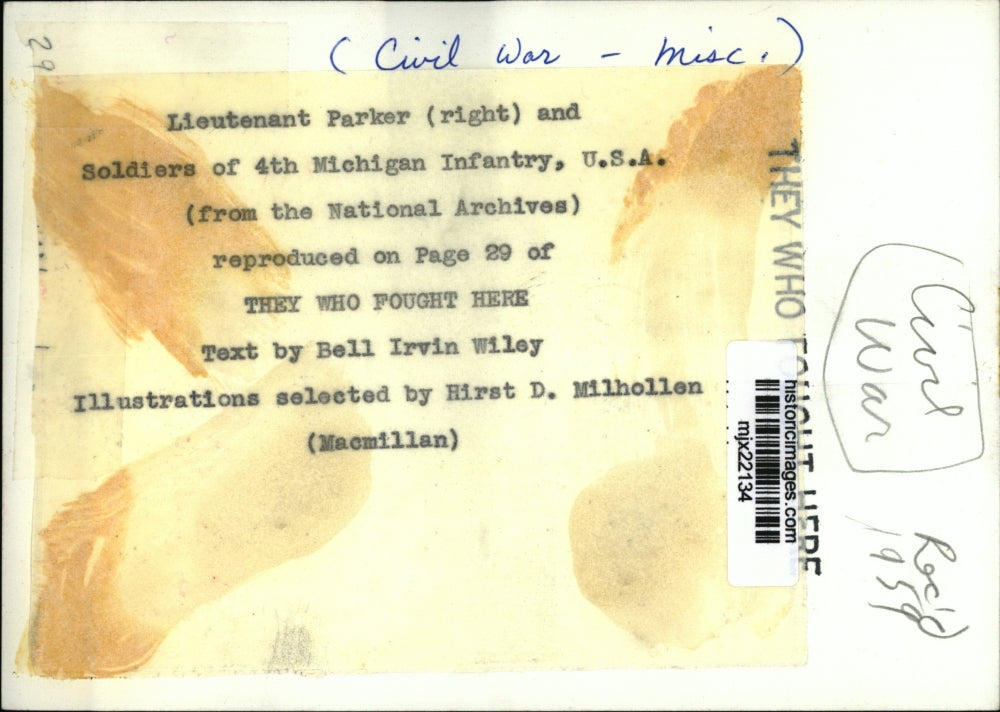 29
( Civil War - Misc. )
Lieutenant Parker (right) and
Soldiers of 4th Michigan Infantry, U.S.A.
(from the National Archives)
reproduced on Page 29 of
THEY WHO FOUGHT HERE
Text by Bell Irvin Wiley
Illustrations selected by Hirst D. Milhollen
(Macmillan)
THEY WHO FOUGHT HERE
historicimages.com
mjx22134
Civil
War
Rec'd
1959